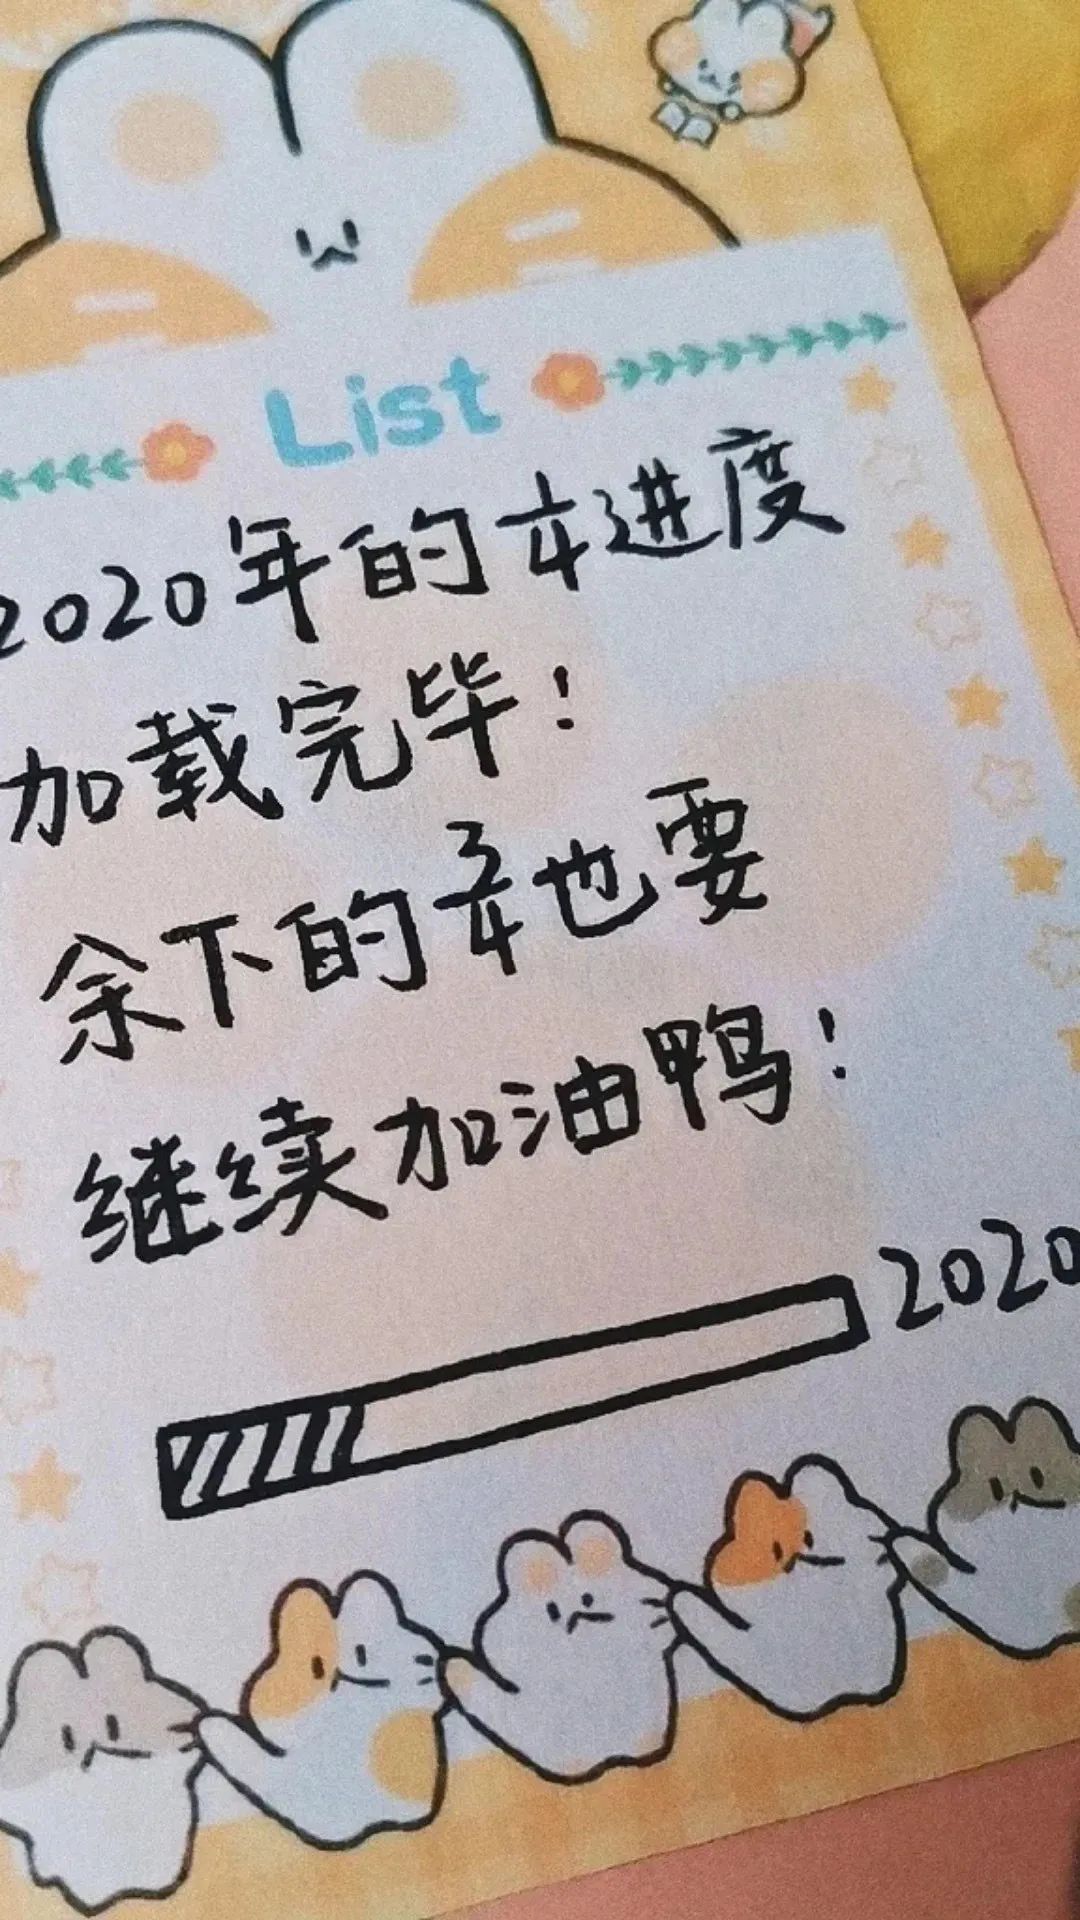 List
2020年的1/4进度
加载完毕!
余下的3/4也要
继续加油鸭!
2020